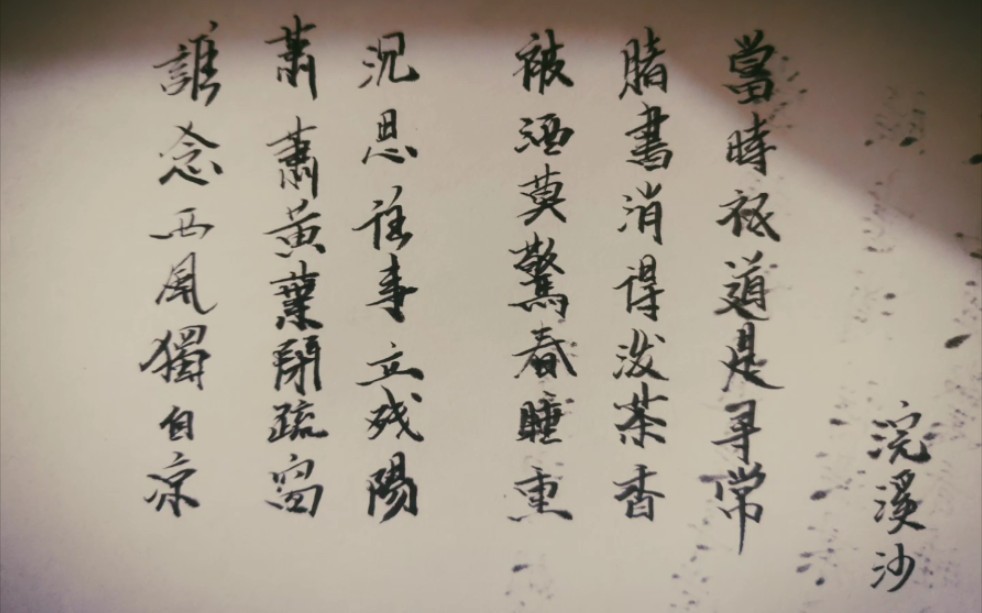 誰念西風獨自凉
蕭蕭黃葉閉疏窗
沉思往事立残陽
被酒莫驚春睡重
賭書消得泼茶香
當時祗道是寻常
浣溪沙